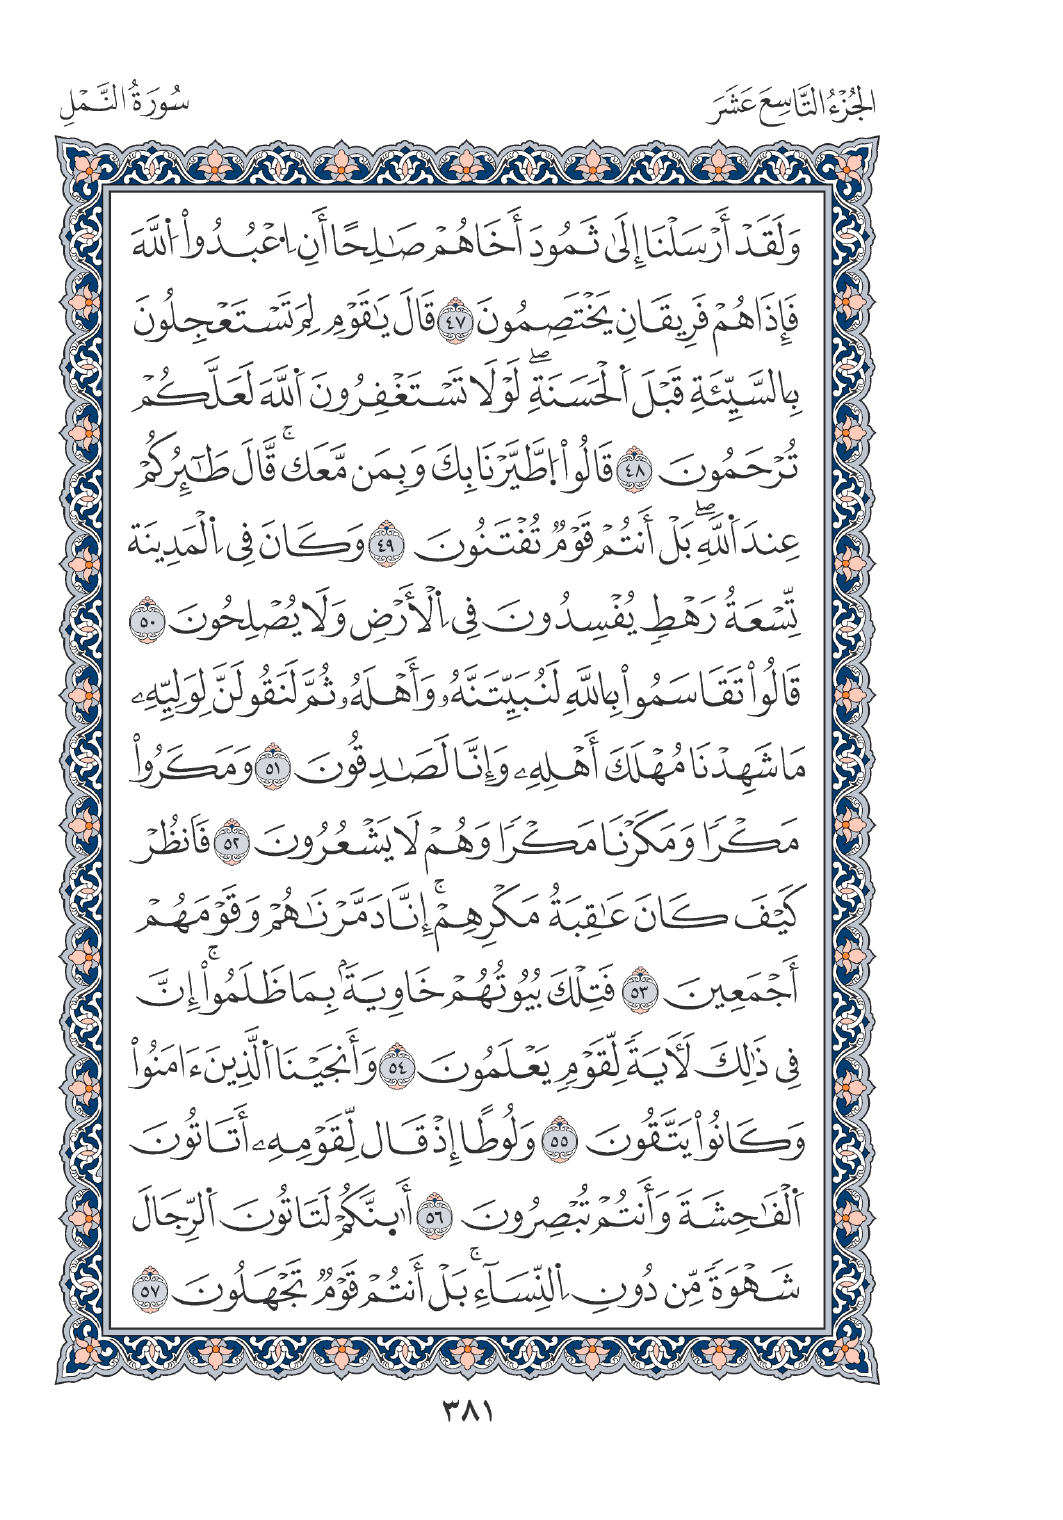 الجُزْءُ التَّاسِعَ عَشَرَ
سُورَةُ النَّمْلِ
وَلَقَدْ أَرْسَلْنَا إِلَىٰ ثَمُودَ أَخَاهُمْ صَٰلِحًا أَنِ اِ۟عْبُدُوا۟ اُ۬للَّهَ
فَإِذَا هُمْ فَرِيقَانِ يَخْتَصِمُونَ ٤٧ قَالَ يَٰقَوْمِ لِمَ تَسْتَعْجِلُونَ
بِالسَّيِّئَةِ قَبْلَ اَ۬لْحَسَنَةِۖ لَوْلَا تَسْتَغْفِرُونَ اَ۬للَّهَ لَعَلَّكُمْ
تُرْحَمُونَ ٤٨ قَالُوا۟ اُ۪طَّيَّرْنَا بِكَ وَبِمَن مَّعَكَۚ قَّالَ طَٰٓئِرُكُمْ
عِندَ اَ۬للَّهِۖ بَلْ أَنتُمْ قَوْمٌ تُفْتَنُونَ ٤٩ وَكَانَ فِي اِ۬لْمَدِينَة
تِّسْعَةُ رَهْطٍ يُفْسِدُونَ فِي اِ۬لْأَرْضِ وَلَا يُصْلِحُونَ ٥٠
قَالُوا۟ تَقَاسَمُوا۟ بِاللَّهِ لَنُبَيِّتَنَّهُۥ وَأَهْلَهُۥ ثُمَّ لَنَقُولَنَّ لِوَلِيِّهِۦ
مَا شَهِدْنَا مُهْلَكَ أَهْلِهِۦ وَإِنَّا لَصَٰدِقُونَ ٥١ وَمَكَرُوا۟
مَكْرًا وَمَكَرْنَا مَكْرًا وَهُمْ لَا يَشْعُرُونَ ٥٢ فَانظُرْ
كَيْفَ كَانَ عَٰقِبَةُ مَكْرِهِمْۚ إِنَّا دَمَّرْنَٰهُمْ وَقَوْمَهُمْ
أَجْمَعِينَ ٥٣ فَتِلْكَ بُيُوتُهُمْ خَاوِيَةَۢ بِمَا ظَلَمُوا۟ۚ إِنَّ
فِي ذَٰلِكَ لَأٓيَةً لِّقَوْمٍ يَعْلَمُونَ ٥٤ وَأَنجَيْنَا اَ۬لَّذِينَ ءَامَنُوا۟
وَكَانُوا۟ يَتَّقُونَ ٥٥ وَلُوطًا إِذْ قَال لِّقَوْمِهِۦ أَتَاتُونَ
اَ۬لْفَٰحِشَةَ وَأَنتُمْ تُبْصِرُونَ ٥٦ أَا۬ىِٕنَّكُمْ لَتَاتُونَ اَ۬لرِّجَالَ
شَهْوَةً مِّن دُونِ اِ۬لنِّسَآءِۚ بَلْ أَنتُمْ قَوْمٌ تَجْهَلُونَ ٥٧
٣٨١